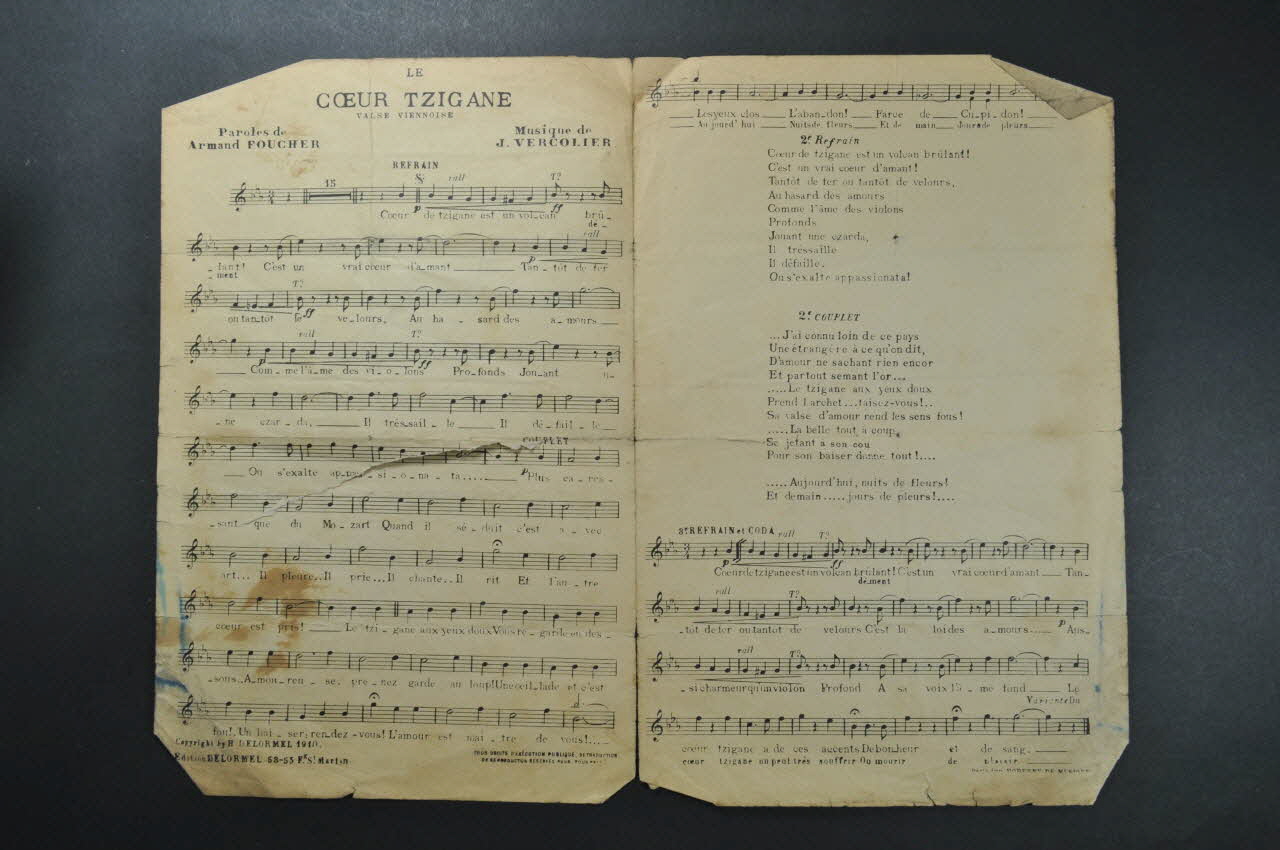 LE
CŒUR TZIGANE
VALSE VIENNOISE
Paroles de
Armand FOUCHER
Musique de
J. VERCOLIER
REFRAIN
15 rall T?
p ff
Cœur de tzigane est un vol_can brû_
dé_
rall
p
_lant! C'est un vrai cœur d'a_mant Tan_tôt de fer
ment
T?
ff
ou tan_tôt de ve_lours, Au ha_sard des a_mours
rall T?
p ff
Com_me l'â_me des vi_o_lons Pro_fonds Jou_ant u_
_ne czar_da, Il tres_sail_le Il dé_fail_le
COUPLET
p
Ou s'exalte ap_pas_si_o_na_ta..... Plus ca_res_
_sant que du Mo_zart Quand il sé_duit c'est a_vec
art... Il pleure.. Il prie... Il chante.. Il rit Et l'au_tre
cœur est pris! Le tzi_gane aux yeux doux Vous re_garde en des_
_sous.. A_mou_reu_se, pre_nez garde au loup! Une œil_lade et c'est
fou!, Un bai_ser; ren_dez-vous! L'amour est maî_tre de vous!....
Copyright by H DELORMEL 1910.
Edition DELORMEL 53-55 Fg St Martin
TOUS DROITS D'EXÉCUTION PUBLIQUE, DE TRADUCTION
DE REPRODUCTION RÉSERVÉS POUR TOUS PAYS
Les yeux clos L'aban_don! Farce de Cu_pi_don!
Au jourd'hui Nuits de fleurs Et de main Jours de pleurs
2e Refrain
Cœur de tzigane est un volcan brûlant!
C'est un vrai cœur d'amant!
Tantôt de fer ou tantôt de velours,
Au hasard des amours
Comme l'âme des violons
Profonds
Jouant une czarda,
Il tressaille
Il défaille.
Ou s'exalte appassionata!
2e COUPLET
...J'ai connu loin de ce pays
Une étrangère à ce qu'on dit,
D'amour ne sachant rien encor
Et partout semant l'or...
.....Le tzigane aux yeux doux
Prend l'archet...taisez-vous!..
Sa valse d'amour rend les sens fous!
.....La belle tout à coup,
Se jetant à son cou
Pour son baiser donne tout!....
.....Aujourd'hui, nuits de fleurs!
Et demain.....jours de pleurs!....
3e REFRAIN et CODA rall T?
p ff
Cœur de tzigane est un volcan brûlant! C'est un vrai cœur d'amant Tan_
dément
rall T?
p
_tôt de fer ou tantôt de velours C'est la loi des a_mours Aus_
rall T?
_si charmeur qu'un violon Profond A sa voix l'â_me fond Le
Variante Ou
cœur tzigane a de ces accents De bonheur et de sang.
cœur tzigane on peut très souffrir Ou mourir de plaisir